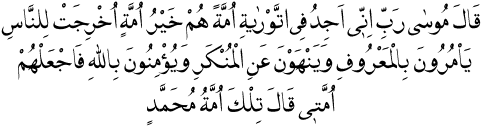 قَالَ مُوسٰى رَبِّ اِنّٖى اَجِدُ فِى اتَّوْرٰيةِ اُمَّةً هُمْ خَيْرُ اُمَّةٍ اُخْرِجَتْ لِلنَّاسِ
يَاْمُرُونَ بِالْمَعْرُوفِ وَيَنْهَوْنَ عَنِ الْمُنْكَرِ وَيُؤْمِنُونَ بِاللهِ فَاجْعَلْهُمْ
اُمَّتٖى قَالَ تِلْكَ اُمَّةُ مُحَمَّدٍ